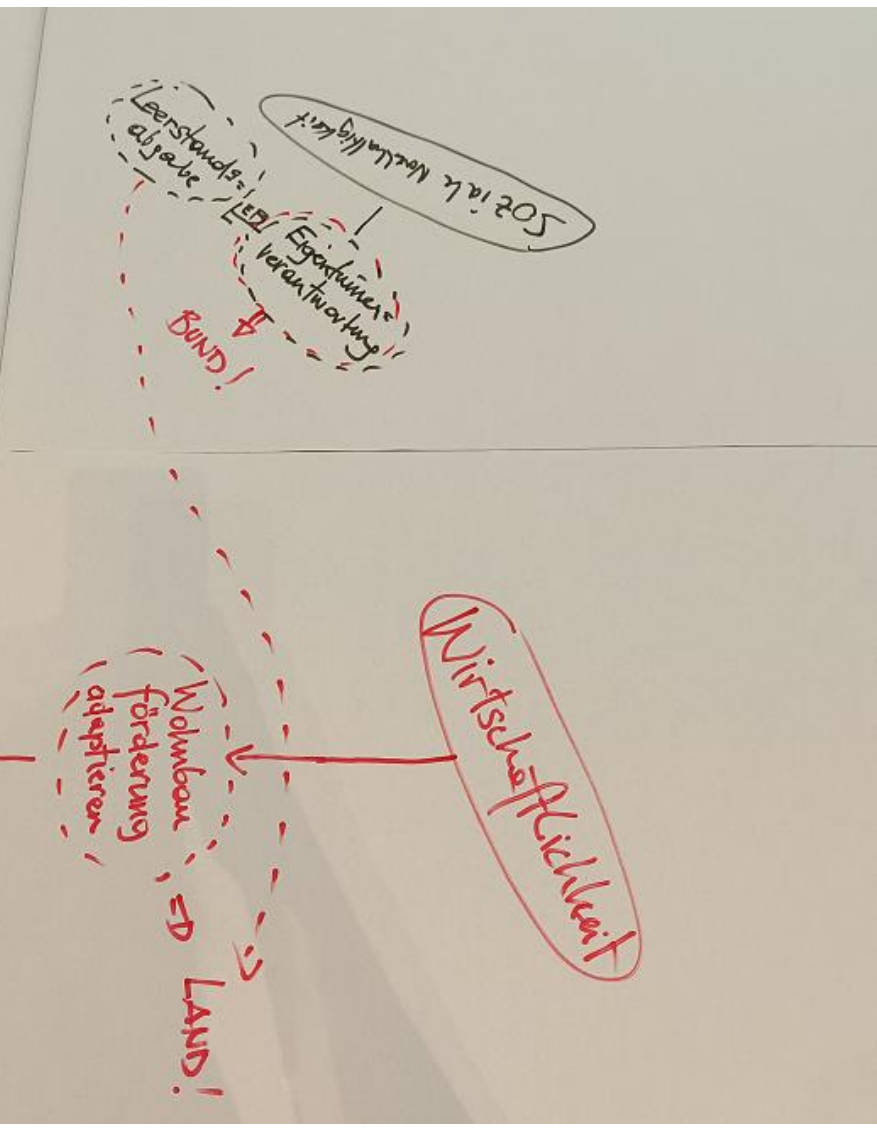 Soziale Nachhaltigkeit
Leerstands=
abgabe
Eigentümer=
verantwortung
BUND!
Wirtschaftlichkeit
Wohnbau
förderung
adaptieren
=D LAND!